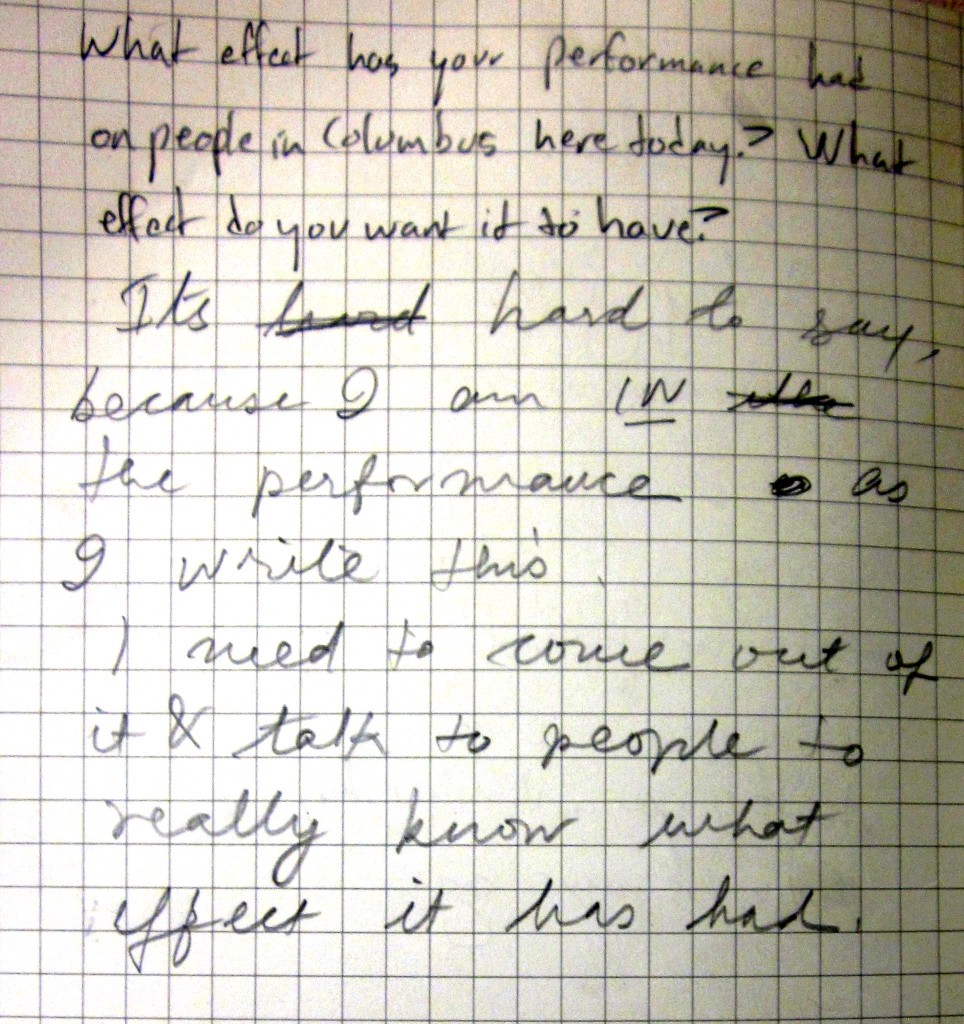 What effect has your performance had
on people in Columbus here today? What
effect do you want it to have?
Its hard hard to say,
because I am IN
the performance as
I write this.
I need to come out of
it & talk to people to
really know what
effect it has had.